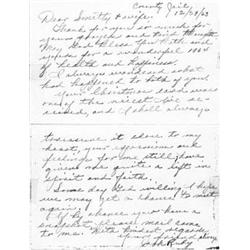 County Jail,
12/28/63
Dear Smitty & wife:
Thank you so much for
your thoughts and kind thoughts
May God bless you both and
wishes for a wonderful 1964
of health and happiness.
I always wondered what
had happened to both of you
Your Christmas card was
one of the nicest I've re-
ceived, and I shall always
treasure it close to my
heart, your expressions and
feelings for me still have
given me quite a lift in
spirit and faith.
Some day God willing I hope
we may get a chance to meet
again.
If by chance you have a
snapshot I'd
to me. With kindest regards
Jack Ruby